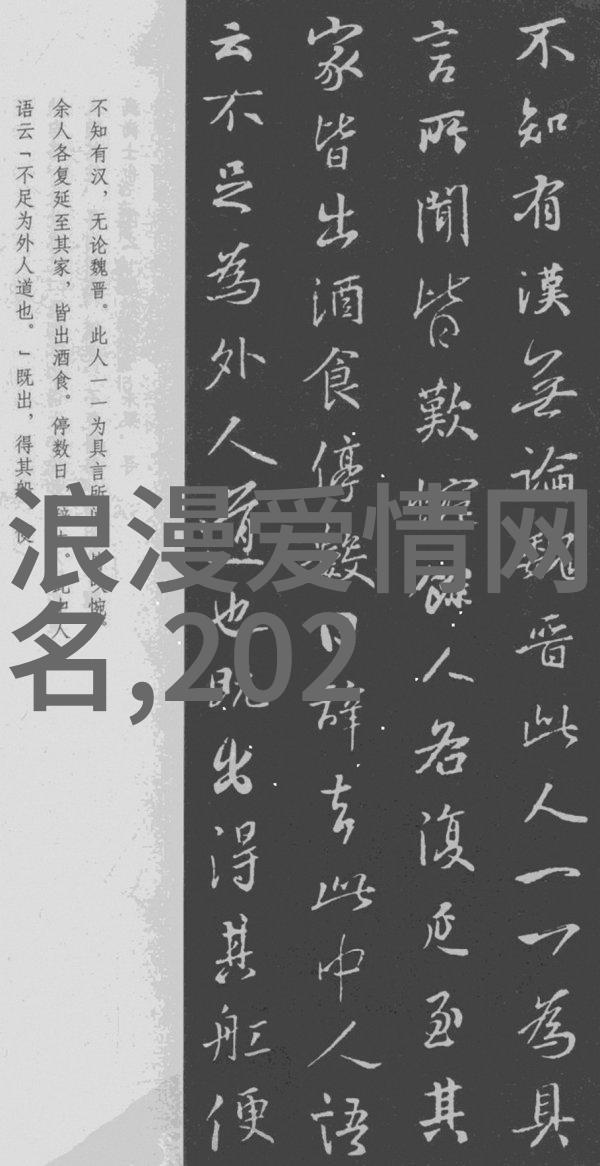 不知有漢無論魏晋此人一一為具
言所聞皆歎惋餘人各復延至其
家皆出酒食停数日辞去此中人語
云不足為外人道也既出得其舡便
不知有汉，无论魏晋。此人一一为具言所
余人各复延至其家，皆出酒食。停数日
语云「不足为外人道也。」既出，得其船
浪漫爱情网
名,202